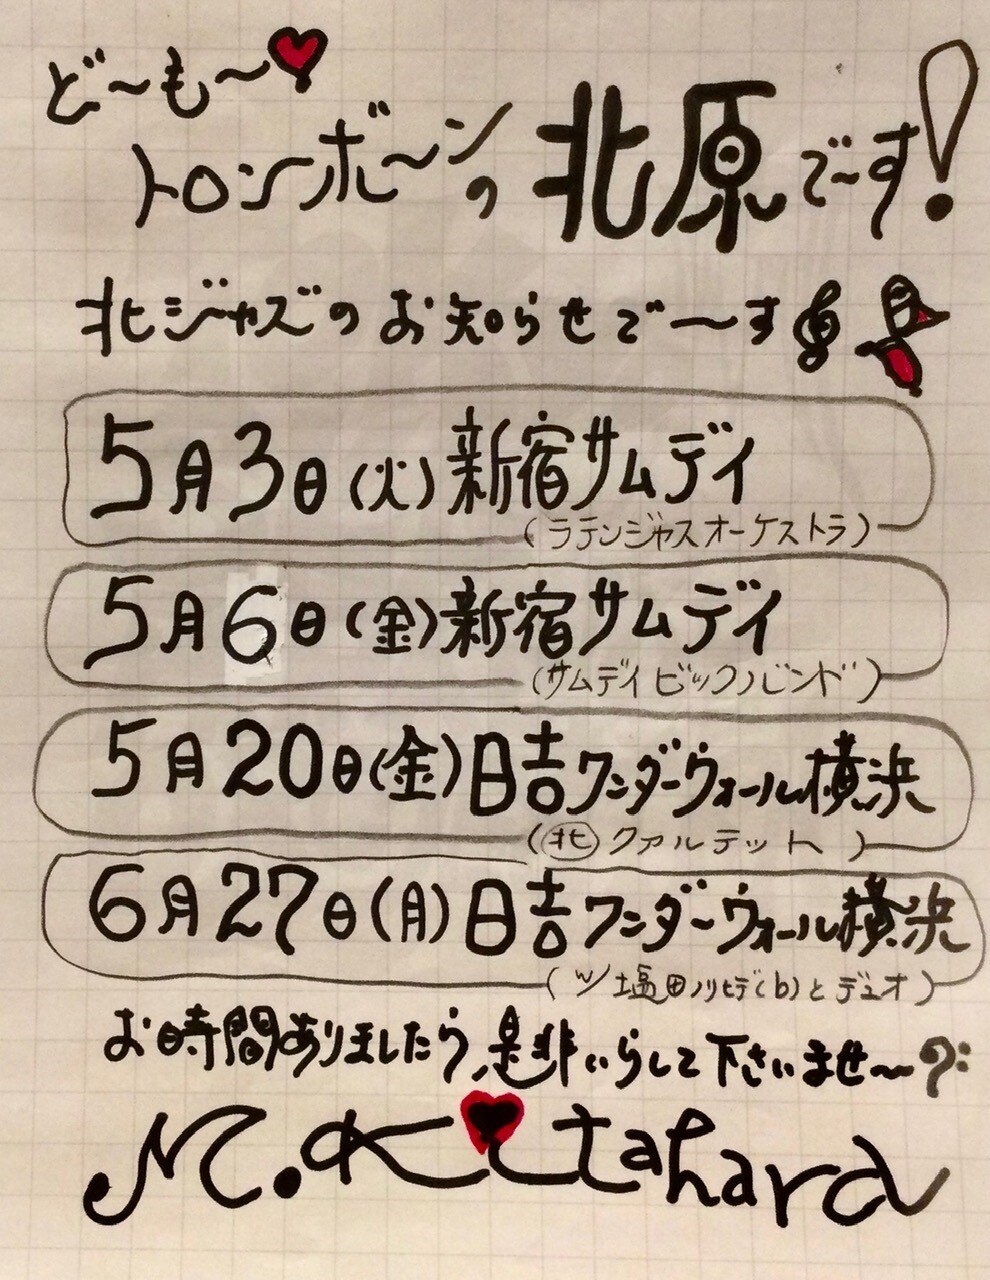 ど〜も〜
トロンボ〜ンの北原で〜す!
北ジャズのお知らせで〜す
5月3日(火)新宿サムデイ
(ラテンジャズオーケストラ)
5月6日(金)新宿サムデイ
(サムデイビックバンド)
5月20日(金)日吉ワンダーウォール横浜
(北クァルテット)
6月27日(月)日吉ワンダーウォール横浜
(w/塩田ノリヒデ(b)とデュオ)
お時間ありましたら、是非いらして下さいませ〜
M.Kitahara